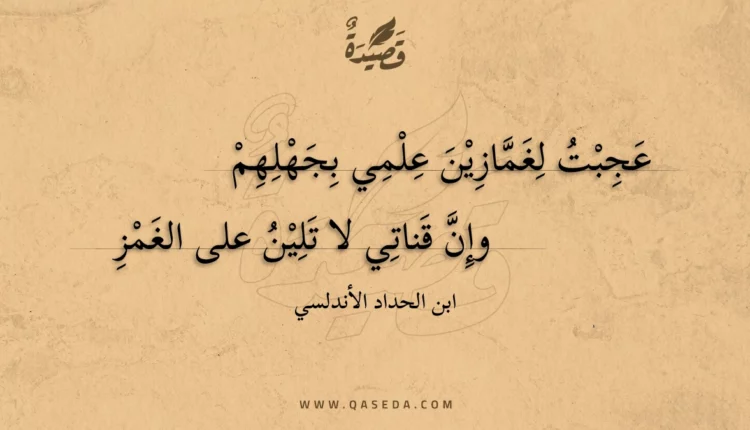 قَصِيْدَةٌ
عَجِبْتُ لِغَمَّازِيْنَ عِلْمِي بِجَهْلِهِمْ
وإِنَّ قَناتِي لا تَلِيْنُ على الغَمْزِ
ابن الحداد الأندلسي
WWW.QASEDA.COM